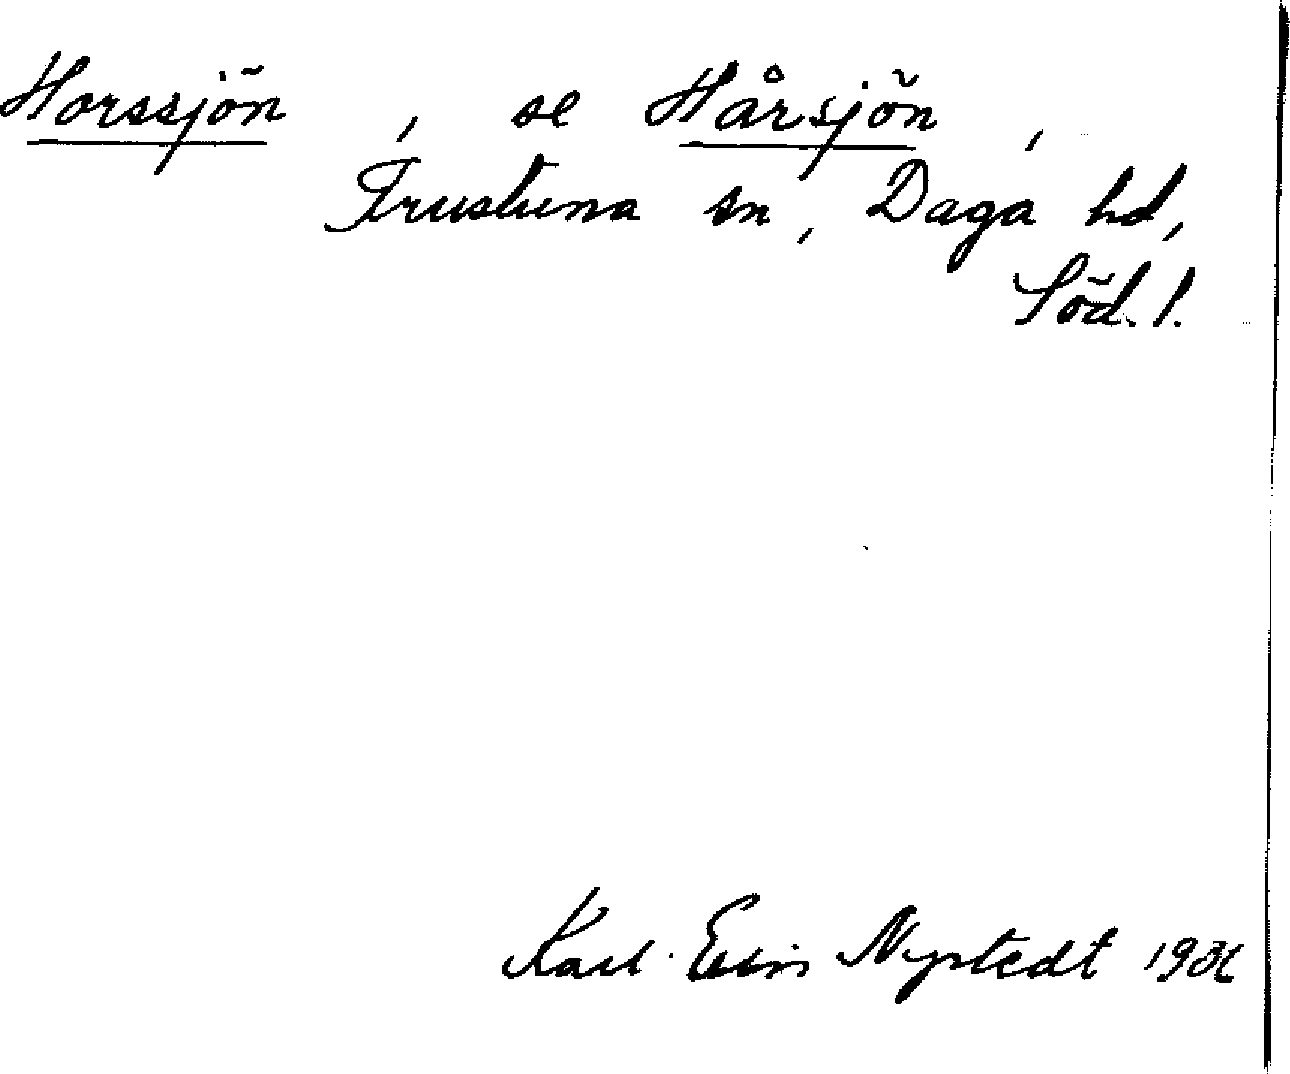 Horssjön, se Hårsjön,
Frustuna sn, Daga hd,
Söd. l.
Karl-Elis Nystedt